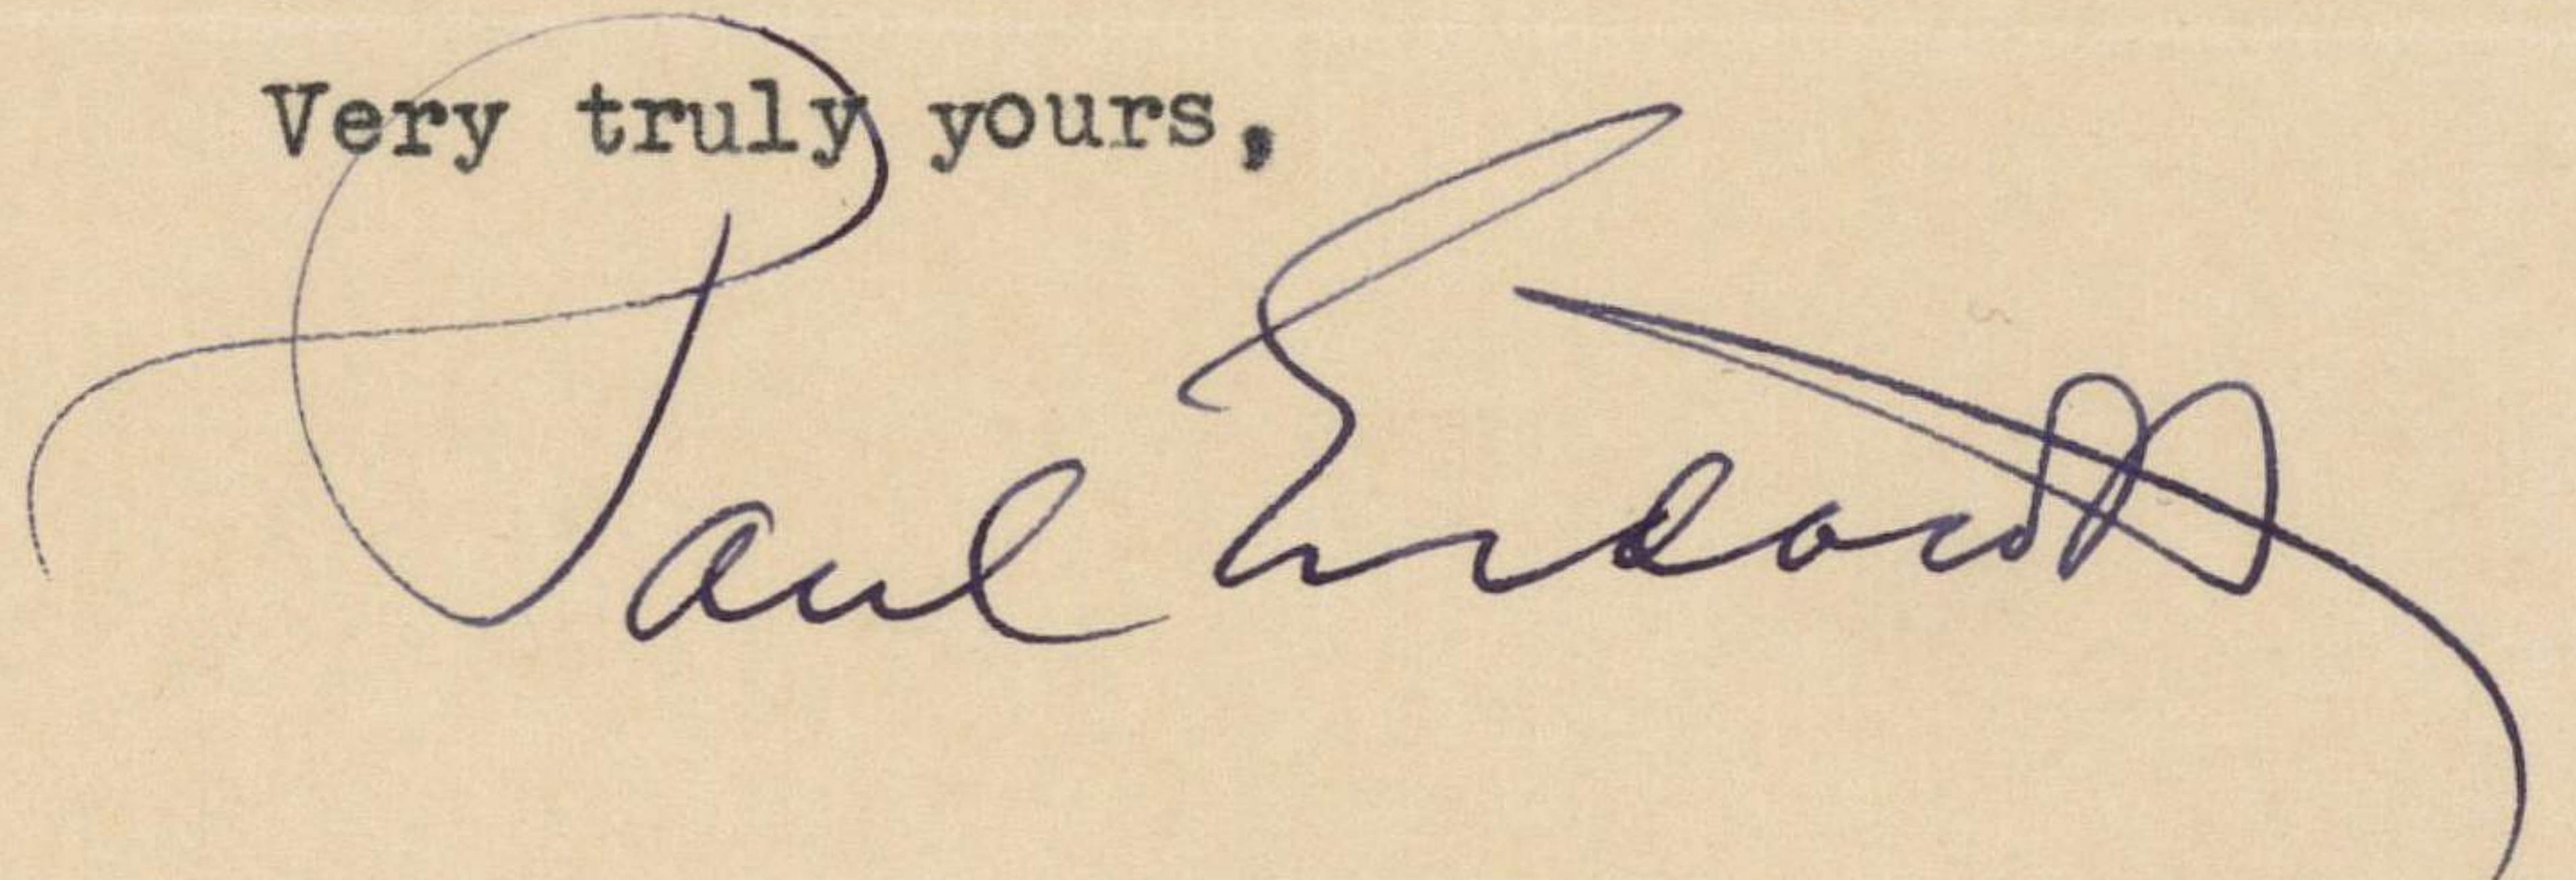 Very truly yours,
Paul Endacott